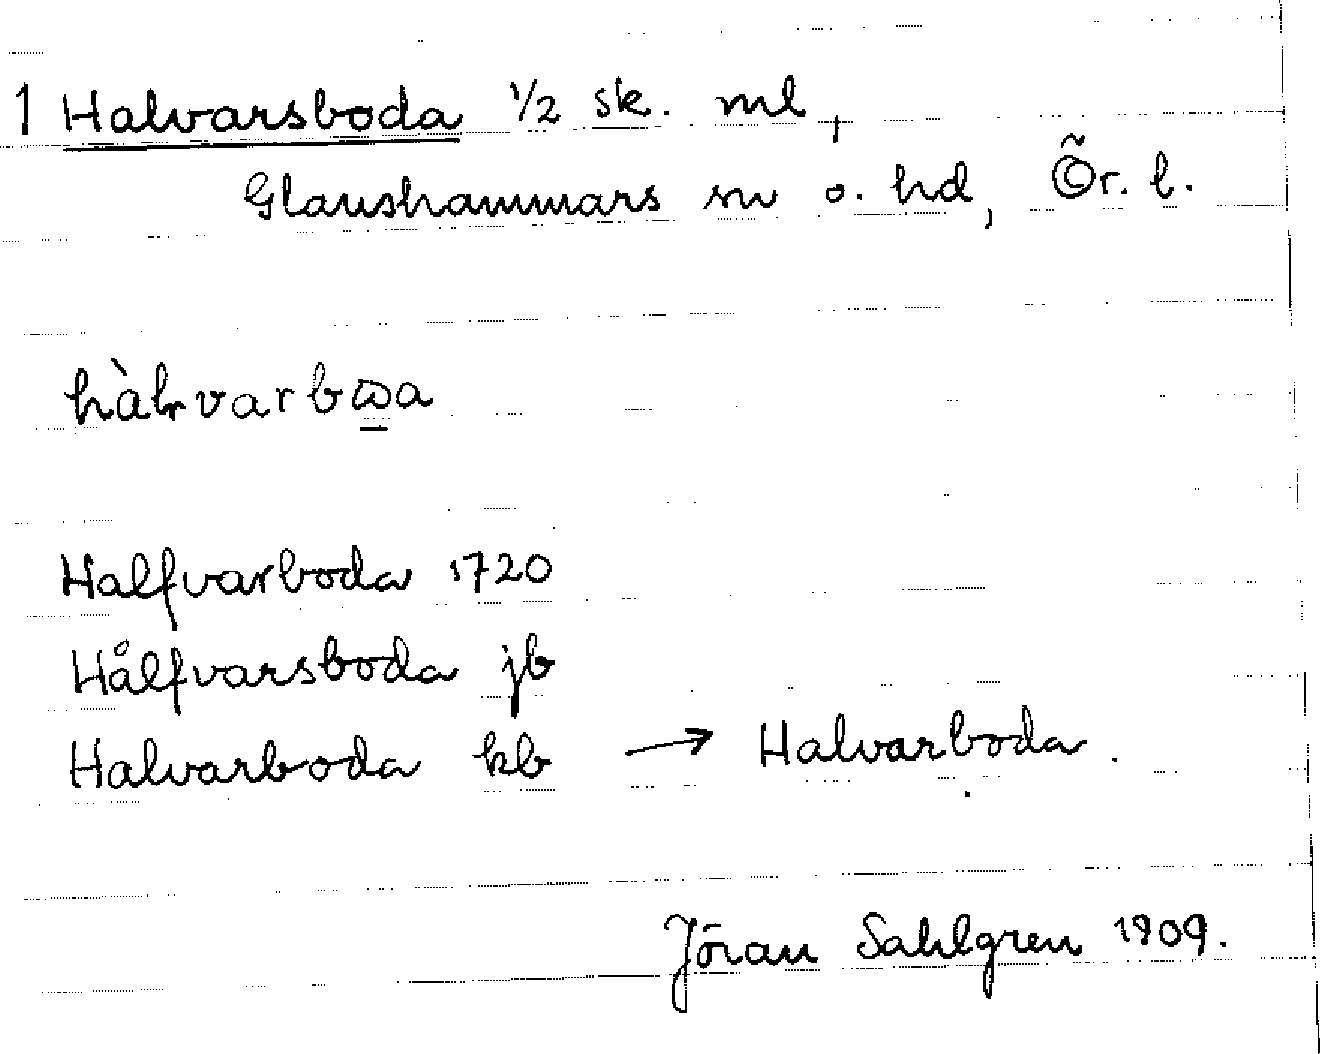 1 Halvarsboda 1/2 sk. ml,
Glanshammars sn o. hd, Ör. l.
hàlvarbωa
Halfvarboda 1720
Hålfvarsboda jb
Halvarboda kb → Halvarboda.
Jöran Sahlgren 1909.